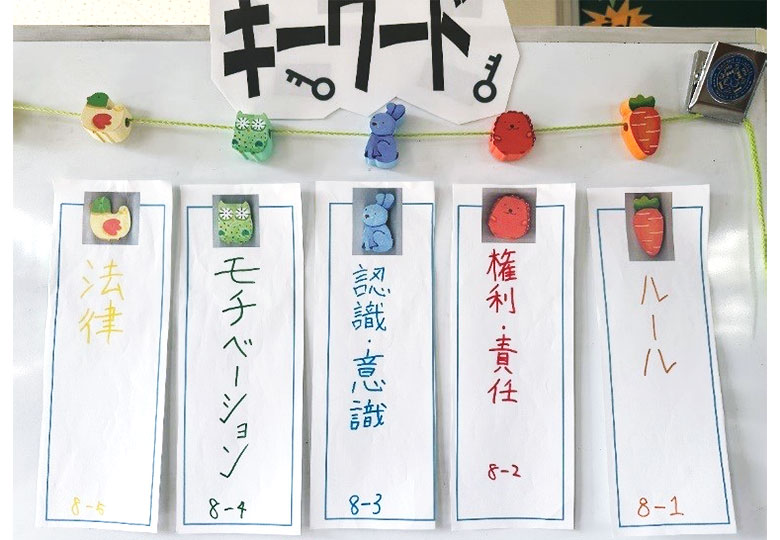 キーワード
ルール
8-1
権利・責任
8-2
認識・意識
8-3
モチベーション
8-4
法律
8-5